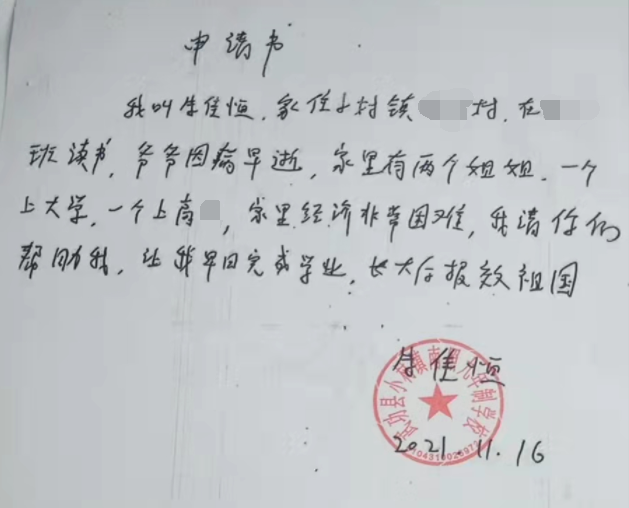 申请书
我叫朱佳恒,家住小村镇 村,在
班读书,爷爷因病早逝,家里有两个姐姐,一个
上大学,一个上高 ,家里经济非常困难,我请你们
帮助我,让我早日完成学业,长大后报效祖国
朱佳恒
武功县小村镇南 九年制学校
2021.11.16